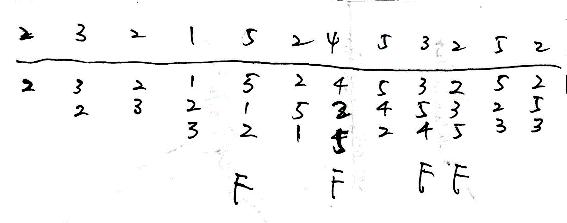 2 3 2 1 5 2 4 5 3 2 5 2
2 3 2 1 5 2 4 5 3 2 5 2
2 3 2 1 5 2 4 5 3 2 5
3 2 1 5 2 4 5 3 3
F F F F